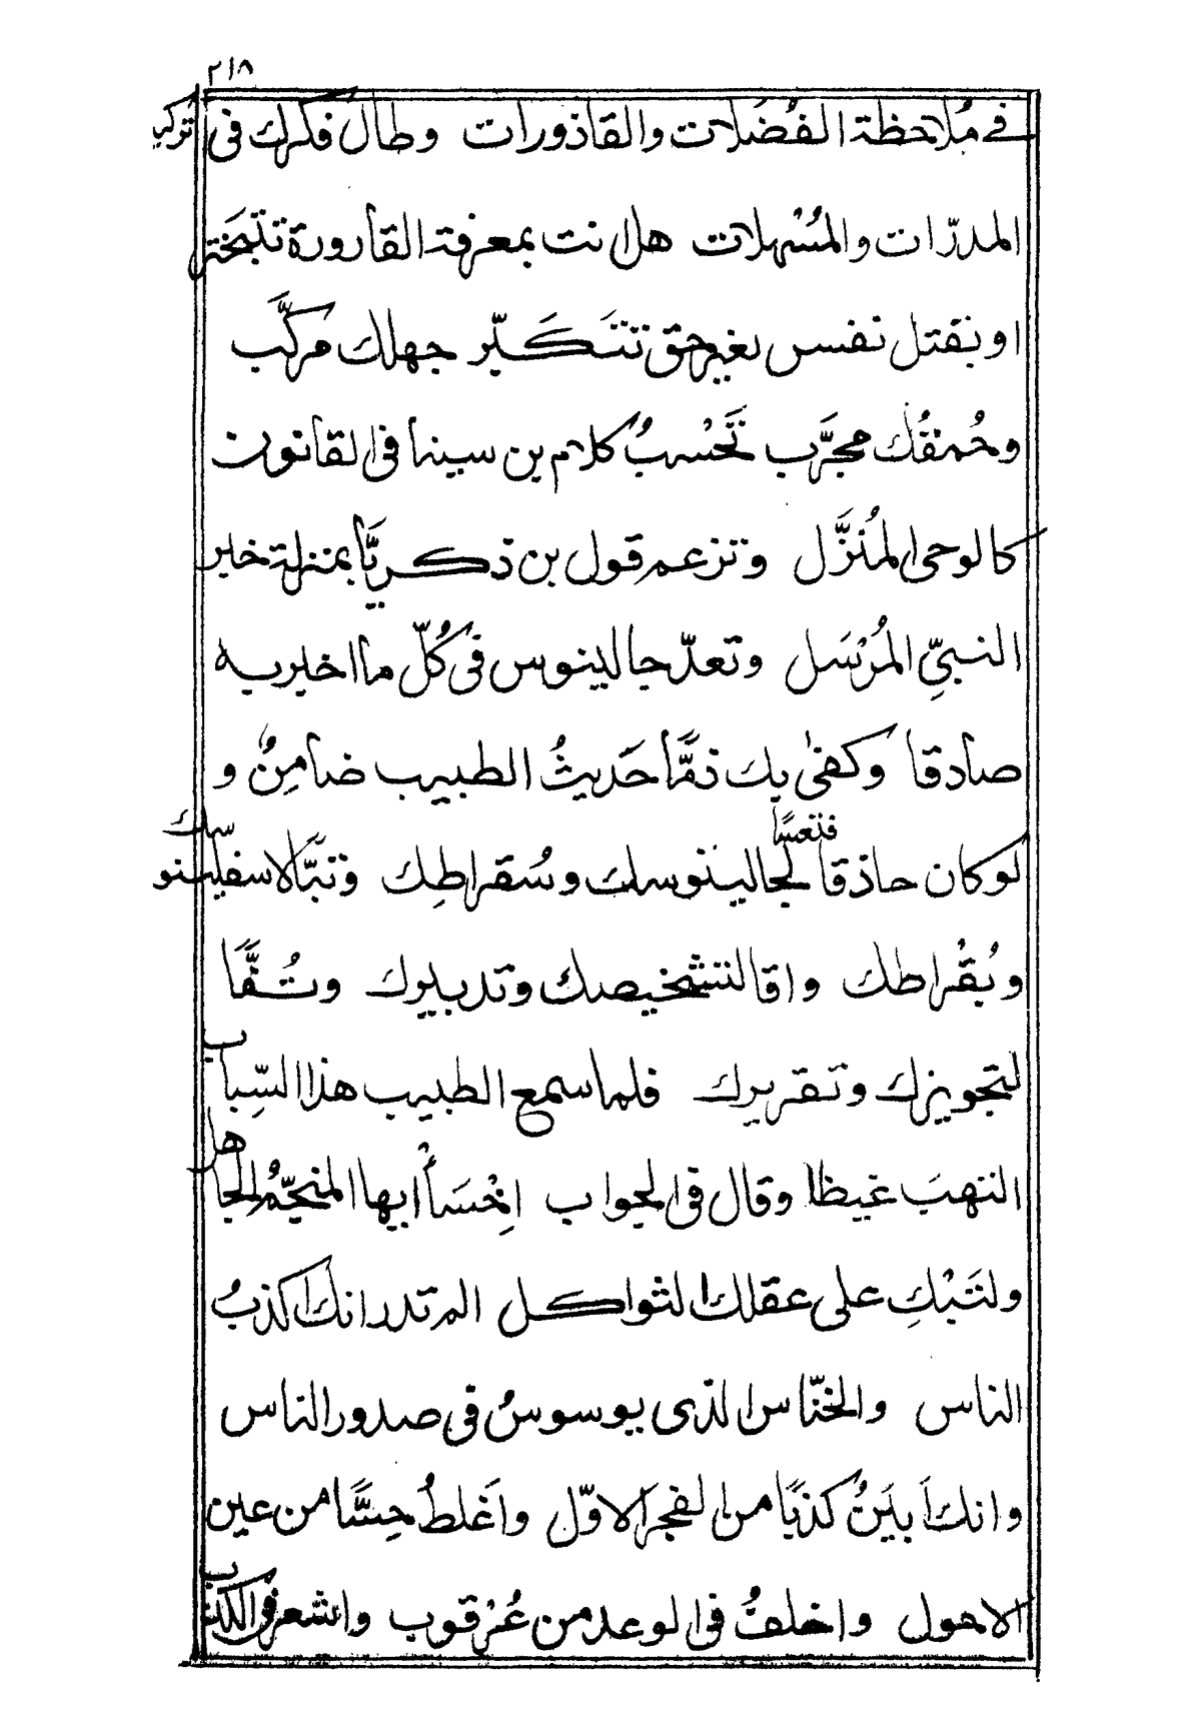 ٢١٨
في مُلاحظة الفُضَلات والقاذورات وطال فكرك فى تركيب
المدرّات والمُسْهلات هل انت بمعرفة القارورة تتبَختر
او بقتل نفس بغير حق تتَكَبّر جهلك مركَّب
وحُمقُك مجرَّب تَحْسبُ كلام بن سينا فى القانون
كالوحى المُنَزَّل وتزعم قول بن ذكريَّا بمنزلة خبر
النبىِّ المُرْسَل وتعدّ جالينوس فى كُلّ ما اخبر به
صادقا وكفىٰ بك ذمَّا حَديثُ الطبيب ضامِنٌ و
لو كان حاذقا فتعسًا لجالينوسك وسُقراطِك وتبَّا لاسقلينوسك
وبُقْراطك وافا لتشخيصك وتدبيرك وتُفَّا
لتجويزك وتقريرك فلما سمع الطبيب هذا السِّباب
التهبَ غيظا وقال فى الجواب اِخْسَأْ ايها المنجّمُ الجاهل
ولتَبْكِ على عقلك الثواكل الم تدر انك اكذبُ
الناس والخنّاس الذى يوسوسُ فى صدور الناس
وانك اَبيَنُ كذبًا من الفجر الاوّل واَغلطُ حِسًّا من عين
الاحول واخلفُ فى الوعد من عُرْقوب واشعر فى الكذب